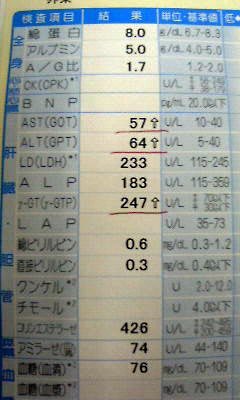 検査項目 結果 単位・基準値 低
総蛋白 8.0 g/dL 6.7-8.3
アルブミン 5.0 g/dL 4.0-5.0
A/G比 1.7 1.2-2.0
CK(CPK) U/L
BNP pg/mL 20.0以下
AST(GOT) 57↑ U/L 10-40
ALT(GPT) 64↑ U/L 5-40
LD(LDH) 233 U/L 115-245
ALP 183 U/L 115-359
γ-GT(γ-GTP) 247↑ U/L 70以下 30以下
LAP U/L 35-73
総ビリルビン 0.6 mg/dL 0.3-1.2
直接ビリルビン 0.3 mg/dL 0.4以下
クンケル U 2.0-12.0
チモール U 4.0以下
コリンエステラーゼ 426 U/L
アミラーゼ 74 U/L 44-140
血糖(血清) 76 mg/dL 70-109
血糖(血漿) mg/dL 70-109